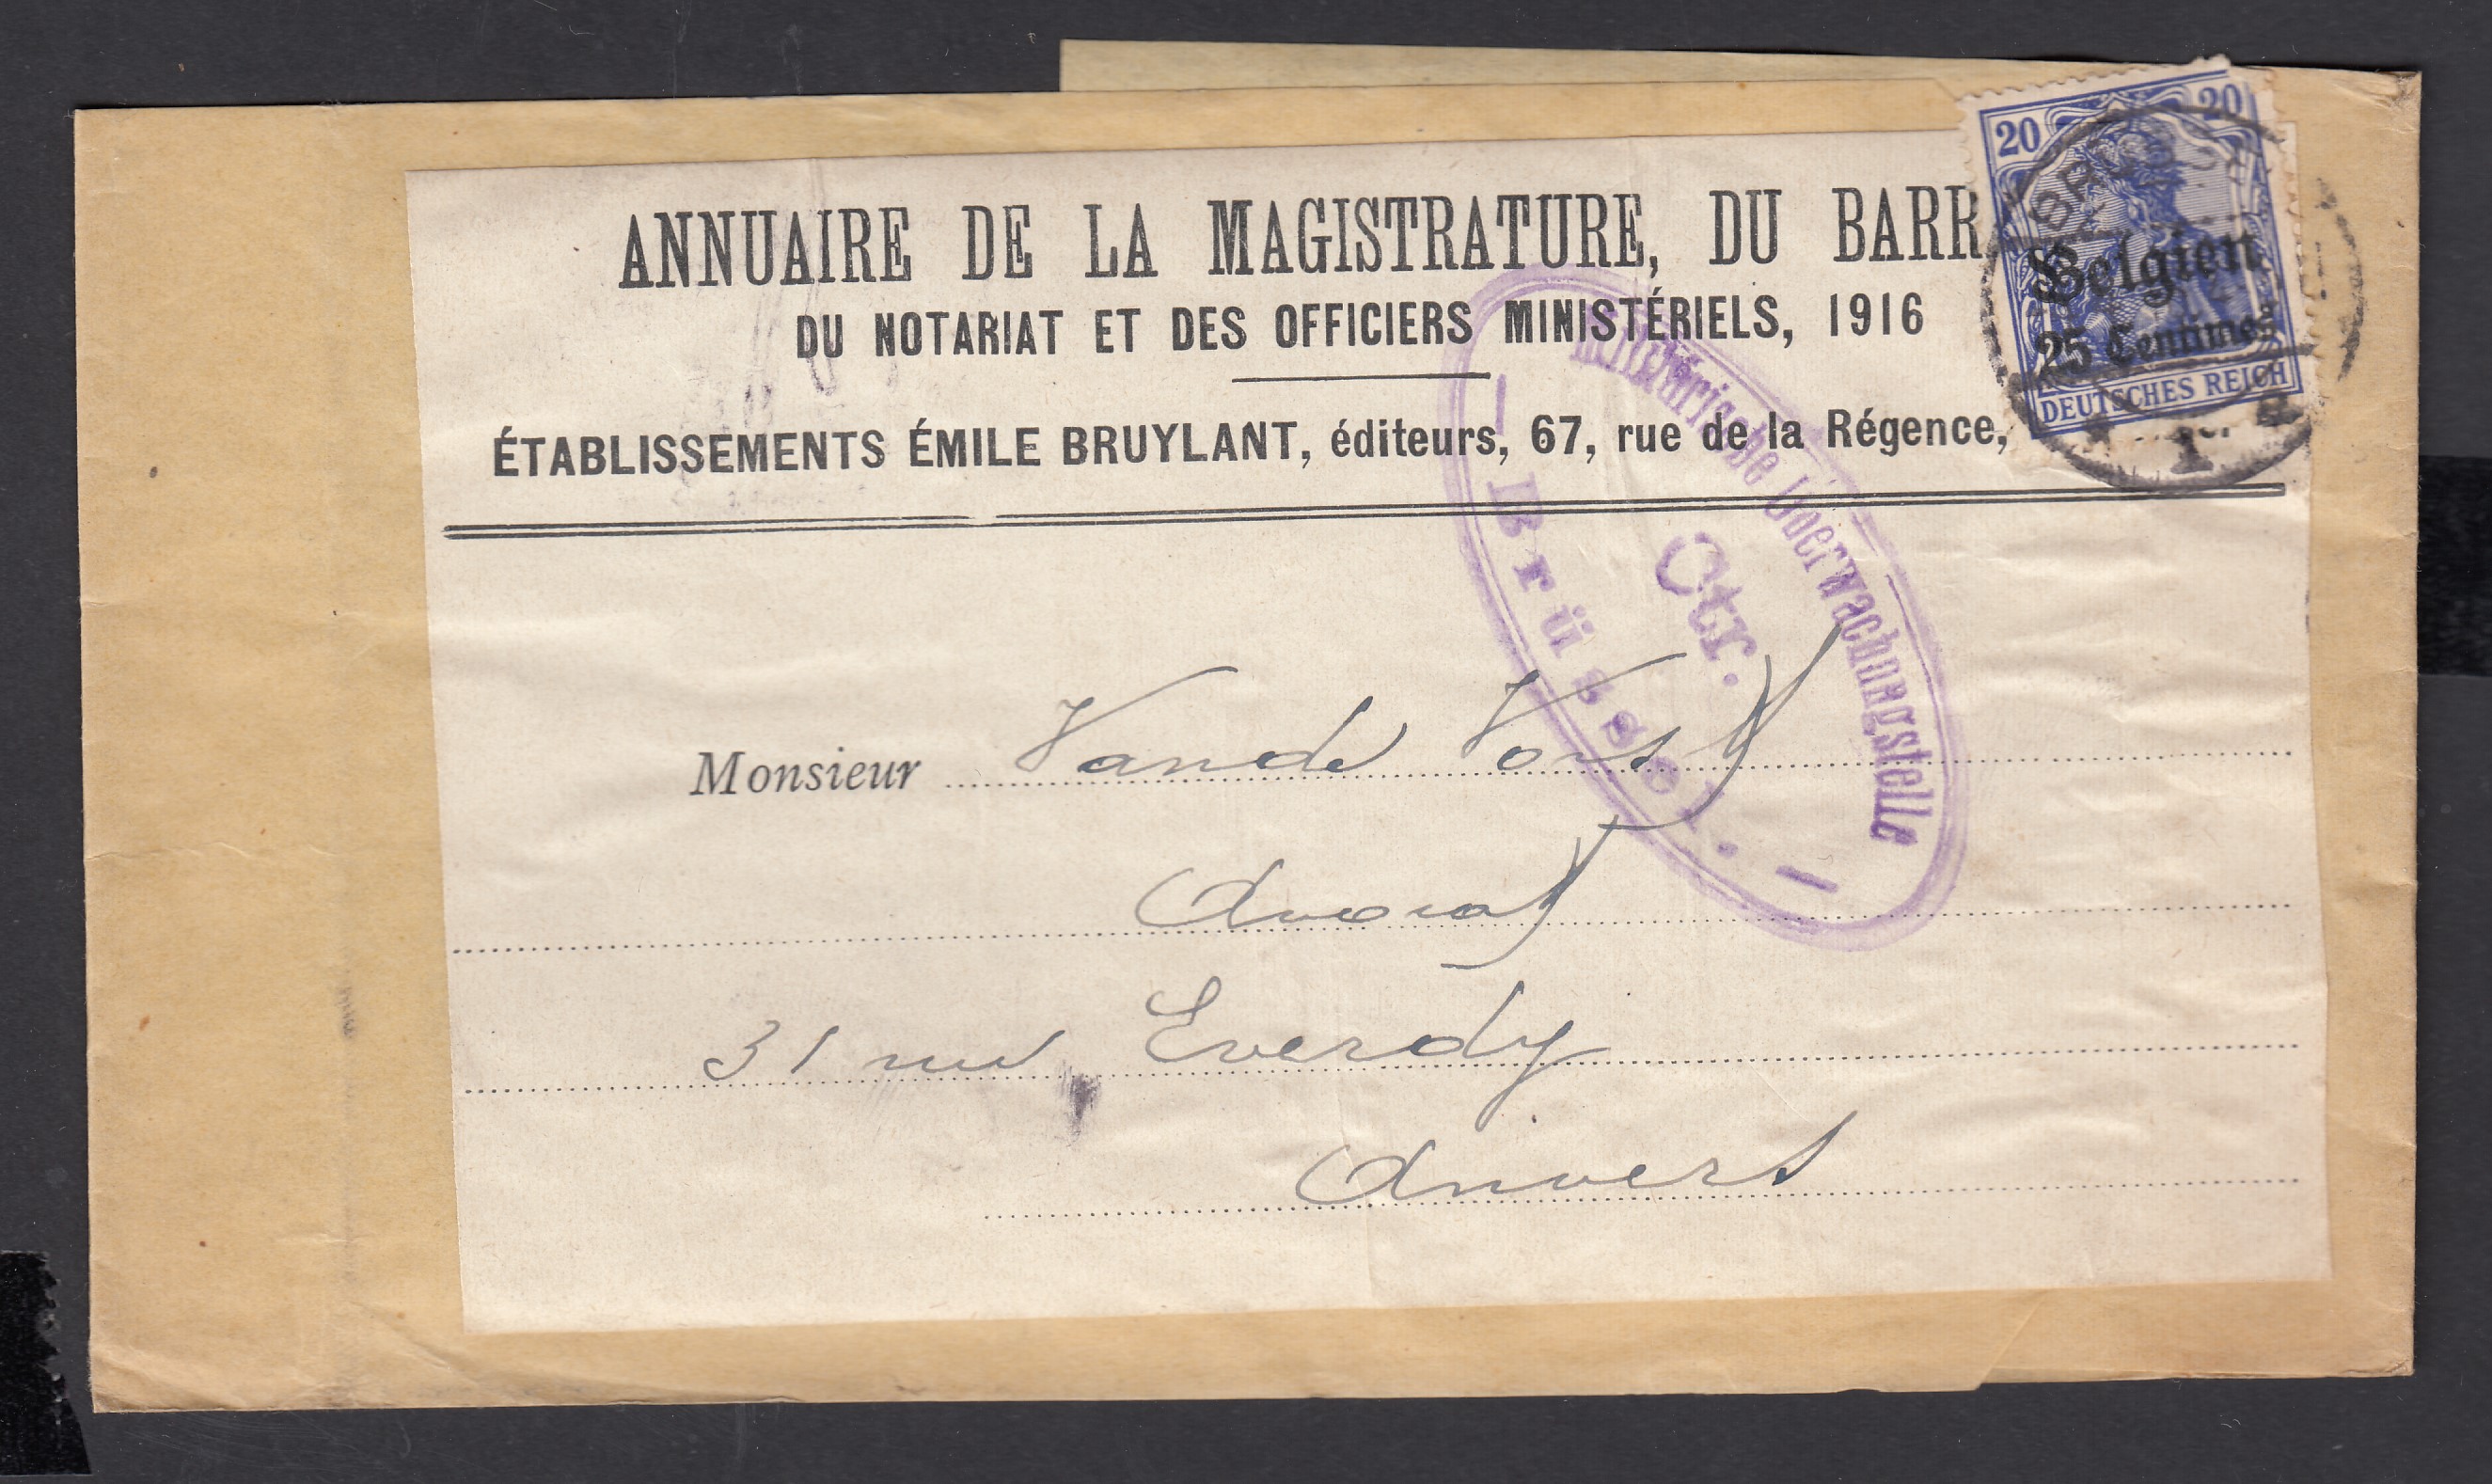 ANNUAIRE DE LA MAGISTRATURE, DU BARR
DU NOTARIAT ET DES OFFICIERS MINISTÉRIELS, 1916
ÉTABLISSEMENTS ÉMILE BRUYLANT, éditeurs, 67, rue de la Régence,
20 20
Belgien
25 Centimes
DEUTSCHES REICH
1
Militärische Überwachungstelle
Ctr.
— Brüssel. —
Monsieur Vande Vorst
Avocat
31 rue Everdy
Anvers